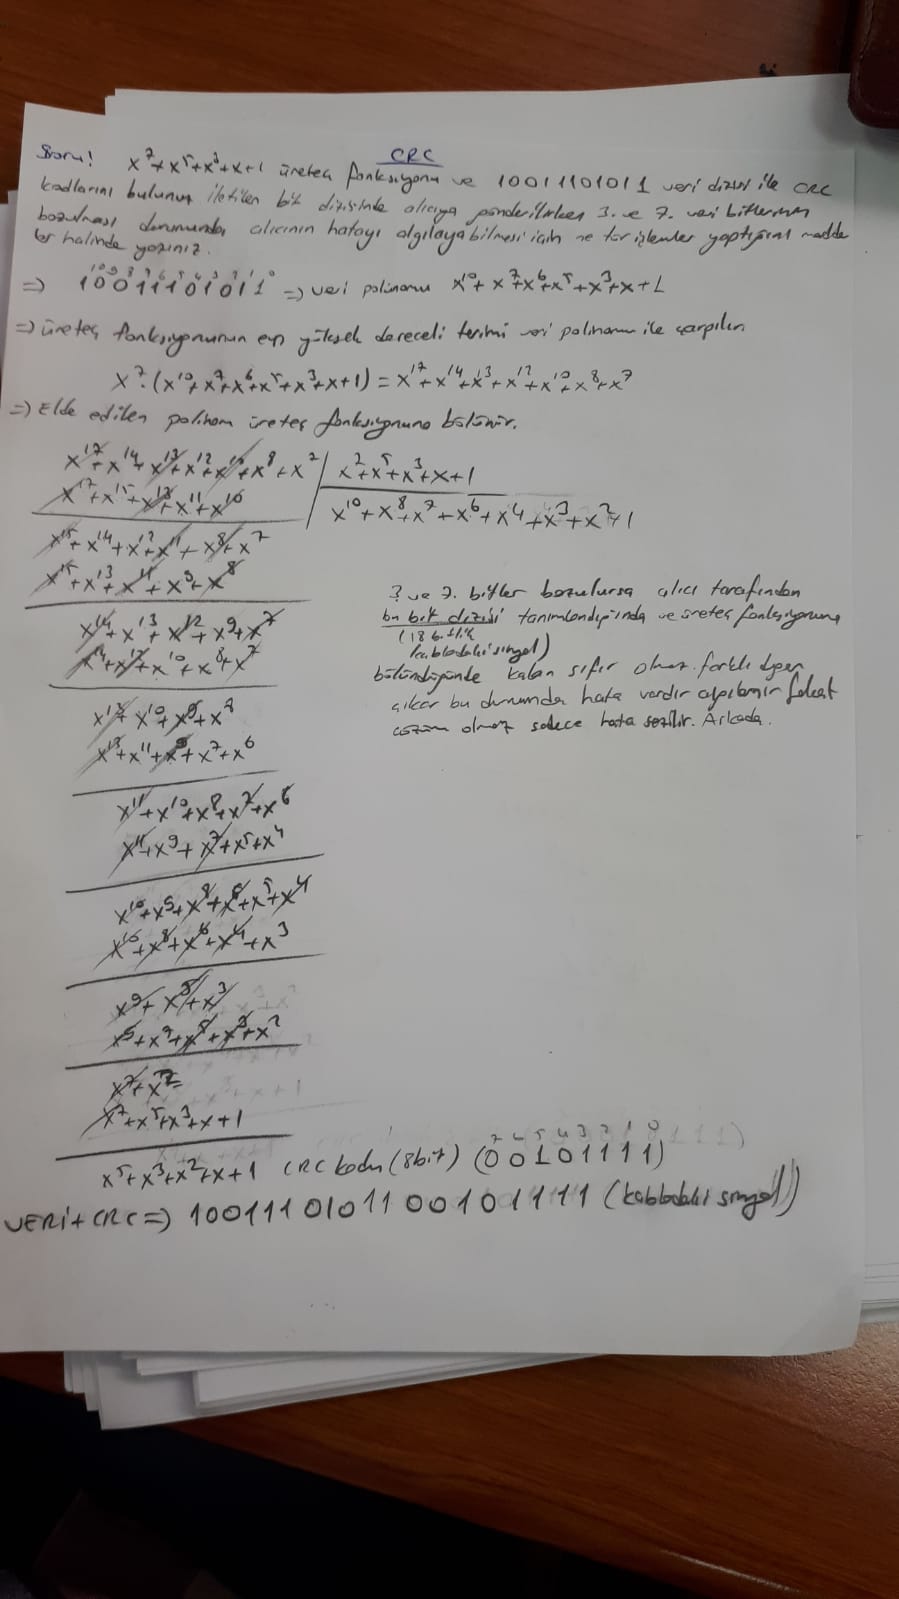 CRC
Soru! x^7+x^5+x^3+x+1 üreteç fonksiyonu ve 10011101011 veri dizisi ile CRC
kodlarını bulunuz iletilen bit dizisinde alıcıya gönderilirken 3. ve 7. veri bitlerinin
bozulması durumunda alıcının hatayı algılayabilmesi için ne tür işlemler yaptığını madde
ler halinde yazınız.
10 9 8 7 6 5 4 3 2 1 0
=> 10011101011 => veri polinomu x^10+x^7+x^6+x^5+x^3+x+1
=> üreteç fonksiyonunun en yüksek dereceli terimi veri polinomu ile çarpılır
x^7.(x^10+x^7+x^6+x^5+x^3+x+1) = x^17+x^14+x^13+x^12+x^10+x^8+x^7
=> Elde edilen polinom üreteç fonksiyonuna bölünür.
x^17+x^14+x^13+x^12+x^10+x^8+x^7 | x^7+x^5+x^3+x+1
x^17+x^15+x^13+x^11+x^10 | x^10+x^8+x^7+x^6+x^4+x^3+x^2+1
x^15+x^14+x^12+x^11+x^8+x^7
x^15+x^13+x^11+x^9+x^8
x^14+x^13+x^12+x^9+x^7
x^14+x^12+x^10+x^8+x^7
x^13+x^10+x^9+x^8
x^13+x^11+x^9+x^7+x^6
x^11+x^10+x^8+x^7+x^6
x^11+x^9+x^7+x^5+x^4
x^10+x^9+x^8+x^6+x^5+x^4
x^10+x^8+x^6+x^4+x^3
x^9+x^5+x^3
x^9+x^7+x^5+x^3+x^2
x^7+x^2
x^7+x^5+x^3+x+1
3 ve 7. bitler bozulursa alıcı tarafından
bu bit dizisi tanımlandığında ve üreteç fonksiyonuna
(18 bitlik
kablodaki sinyal)
bölündüğünde kalan sıfır olmaz farklı değer
çıkar bu durumda hata vardır fakat
çözüm olmaz sadece hata sezilir.
7 6 5 4 3 2 1 0
x^5+x^3+x^2+x+1 CRC kodu (8bit) (00101111)
VERİ+CRC => 1001110101100101111 (kablodaki sinyal)